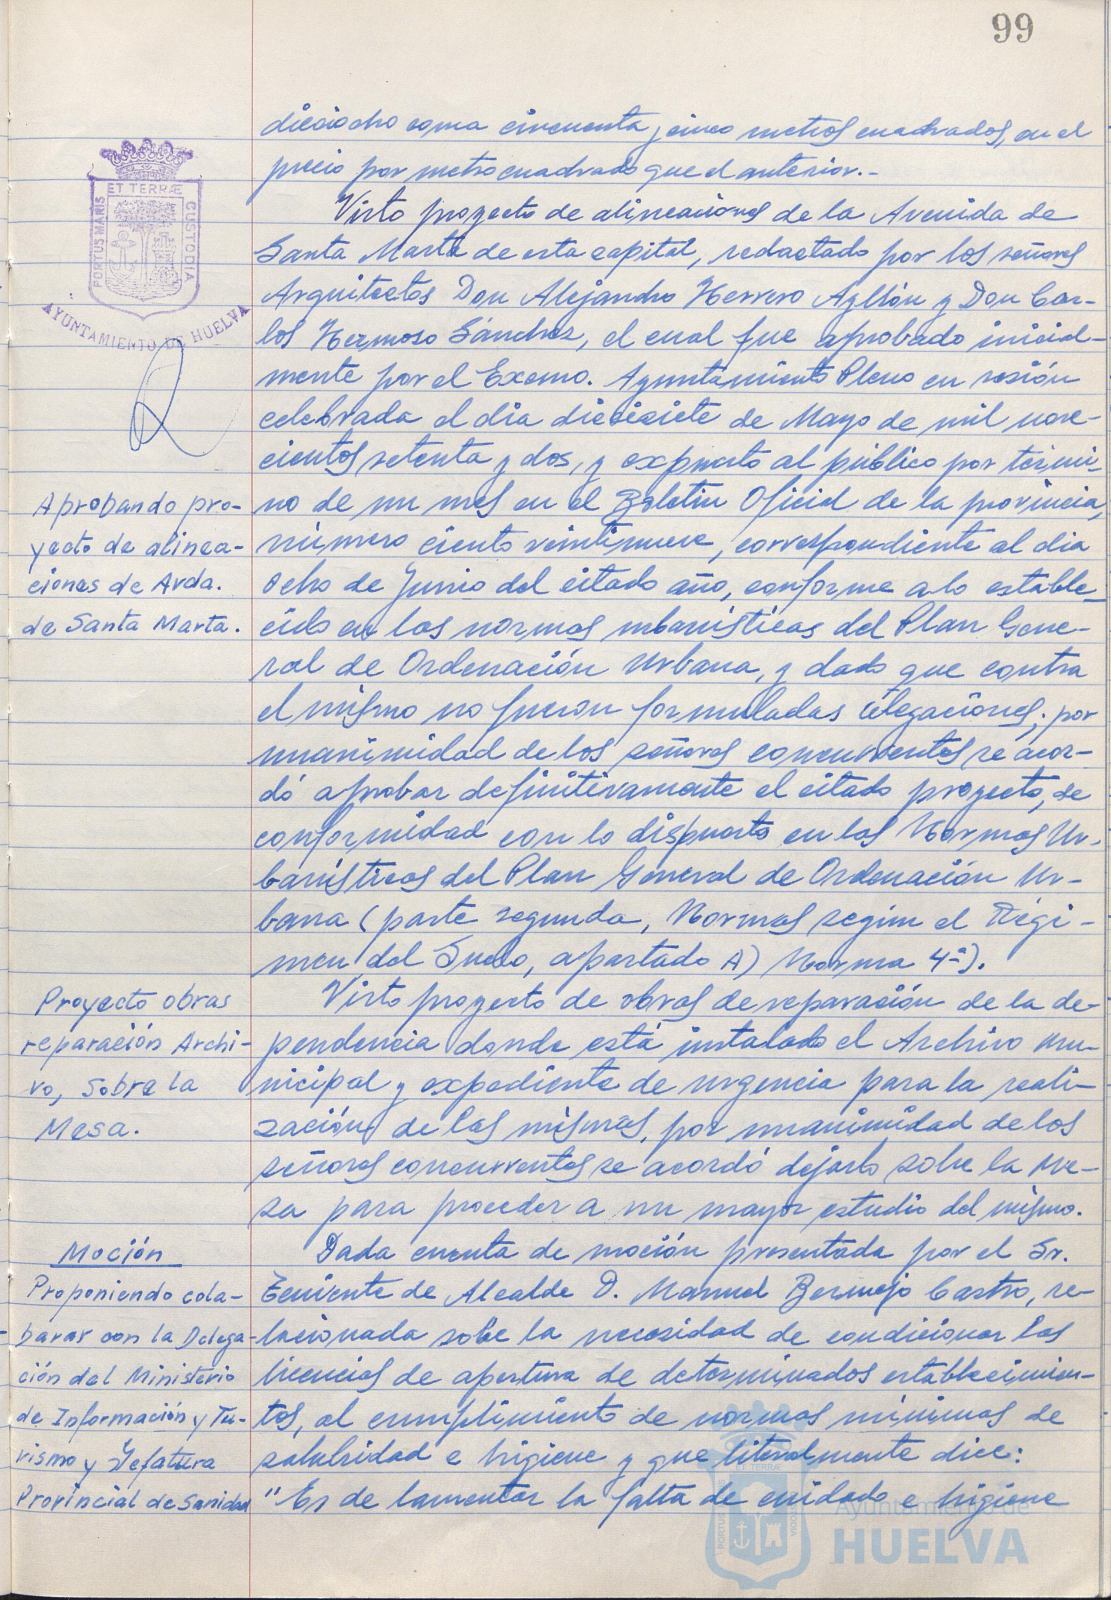 99
dieciocho coma cincuenta y cinco metros cuadrados, en el
precio por metro cuadrado que el anterior.-
Visto proyecto de alineaciones de la Avenida de
Santa Marta de esta capital, redactado por los señores
Arquitectos Don Alejandro Herrero Ayllón y Don Car-
los Hermoso Sánchez, el cual fue aprobado inicial-
mente por el Excmo. Ayuntamiento Pleno en sesión
celebrada el dia diecisiete de Mayo de mil nove-
cientos setenta y dos, y expuesto al público por térmi-
no de un mes en el Boletin Oficial de la provincia,
número ciento veintinueve, correspondiente al dia
ocho de Junio del citado año, conforme a lo estable-
cido en las normas urbanísticas del Plan Gene-
ral de Ordenación Urbana, y dado que contra
el mismo no fueron formuladas alegaciones; por
unanimidad de los señores concurrentes se acor-
dó aprobar definitivamente el citado proyecto, de
conformidad con lo dispuesto en las Normas Ur-
banísticas del Plan General de Ordenación Ur-
bana (parte segunda, Normas según el Régi-
men del Suelo, apartado A) Norma 4ª).
Visto proyecto de obras de reparación de la de-
pendencia donde está instalado el Archivo Mu-
nicipal y expediente de urgencia para la reali-
zación de las mismas, por unanimidad de los
señores concurrentes se acordó dejarlo sobre la Me-
sa para proceder a un mayor estudio del mismo.
Dada cuenta de moción presentada por el Sr.
Teniente de Alcalde D. Manuel Bermejo Castro, re-
lacionada sobre la necesidad de condicionar las
licencias de apertura de determinados establecimien-
tos, al cumplimiento de normas mínimas de
salubridad e higiene y que literalmente dice:
"Es de lamentar la falta de cuidado e higiene
ET TERRÆ
PORTUS MARIS
CUSTODIA
AYUNTAMIENTO DE HUELVA
Aprobando pro-
yecto de alinea-
ciones de Avda.
de Santa Marta.
Proyecto obras
reparación Archi-
vo, sobre la
Mesa.
Moción
Proponiendo cola-
borar con la Delega-
ción del Ministerio
de Información y Tu-
rismo y Jefatura
Provincial de Sanidad
ET TERRÆ
PORTUS MARIS
CUSTODIA
Ayuntamiento de
HUELVA